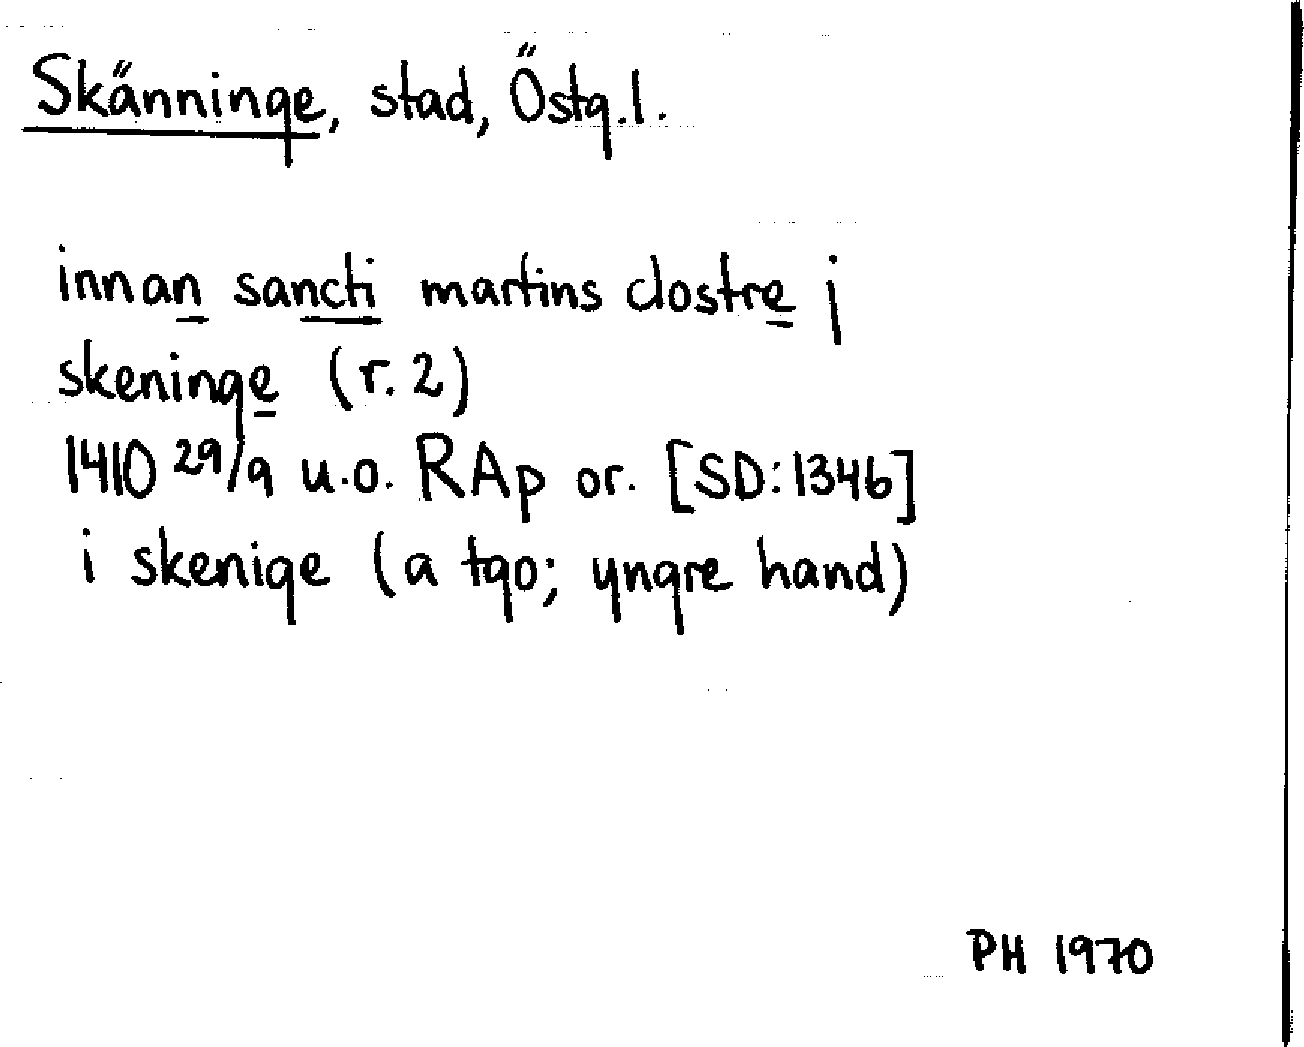 Skänninge, stad, Östg.l.
innan sancti martins clostre j
skeninge (r. 2)
1410 29/9 u.o. RAp or. [SD: 1346]
i skenige (a tgo; yngre hand)
PH 1970